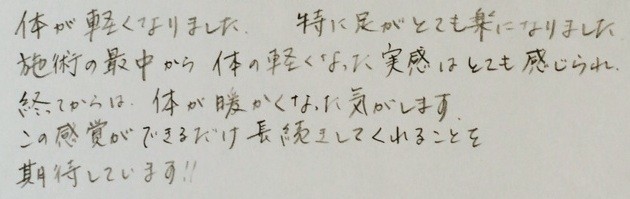 体が軽くなりました. 特に足がとても楽になりました
施術の最中から 体の軽くなった実感はとても感じられ.
終ってからは. 体が暖かくなった気がします.
この感覚ができるだけ長続きしてくれることを
期待しています!!